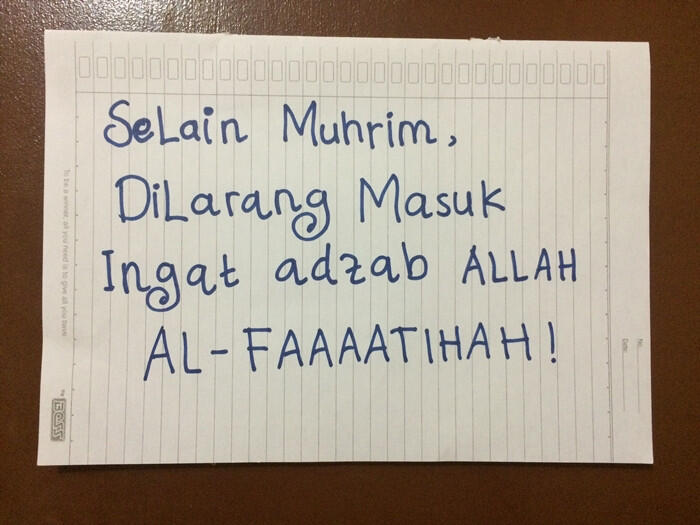 Selain Muhrim,
Dilarang Masuk
Ingat adzab ALLAH
AL-FAAAATIHAH!
To be a winner, all you need is to give all you have
by BOSS
No.
Date.